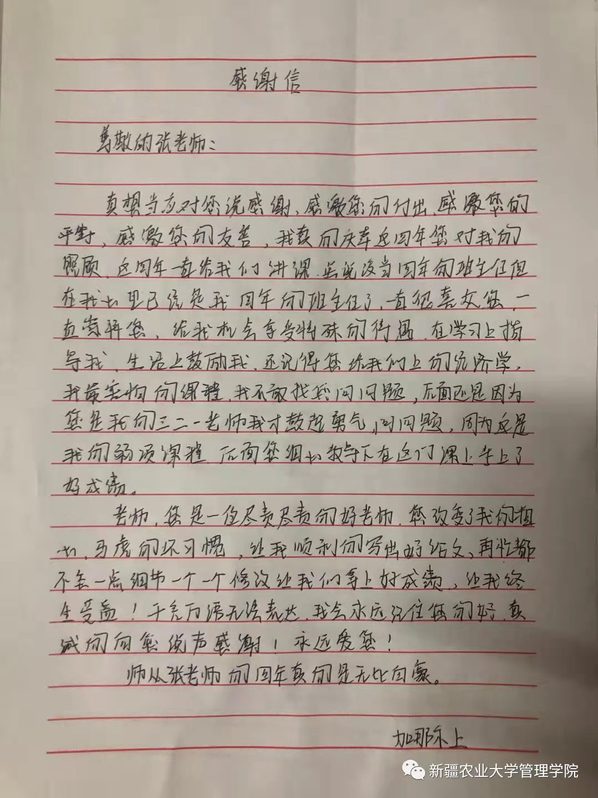 感谢信
尊敬的张老师：
真想当面对您说感谢，感激您的付出，感激您的
平等，感激您的友善，我真的庆幸这四年您对我的
照顾，这四年一直给我们讲课，虽说没当四年的班主任但
在我心里已经是我四年的班主任了，一直很喜欢您，一
直崇拜您，给我机会享受特殊的待遇，在学习上指
导我，生活上鼓励我，还记得您给我们上的经济学，
我最害怕的课程，我不敢找您问问题，后面还是因为
您是我的三二一老师我才鼓起勇气，问问题，因为这是
我的弱项课程 后面您细心教导下在这门课上考上了
好成绩。
老师，您是一位尽责尽责的好老师，您改变了我们粗
心，马虎的坏习惯，让我顺利的写出好论文，再忙都
不丢一点细节一个一个修改让我们拿上好成绩，让我终
生受益！千言万语无法表达，我会永远记住您的好，真
诚的向您说声感谢！永远爱您！
师从张老师的四年真的是无比自豪。
加那尔上
新疆农业大学管理学院